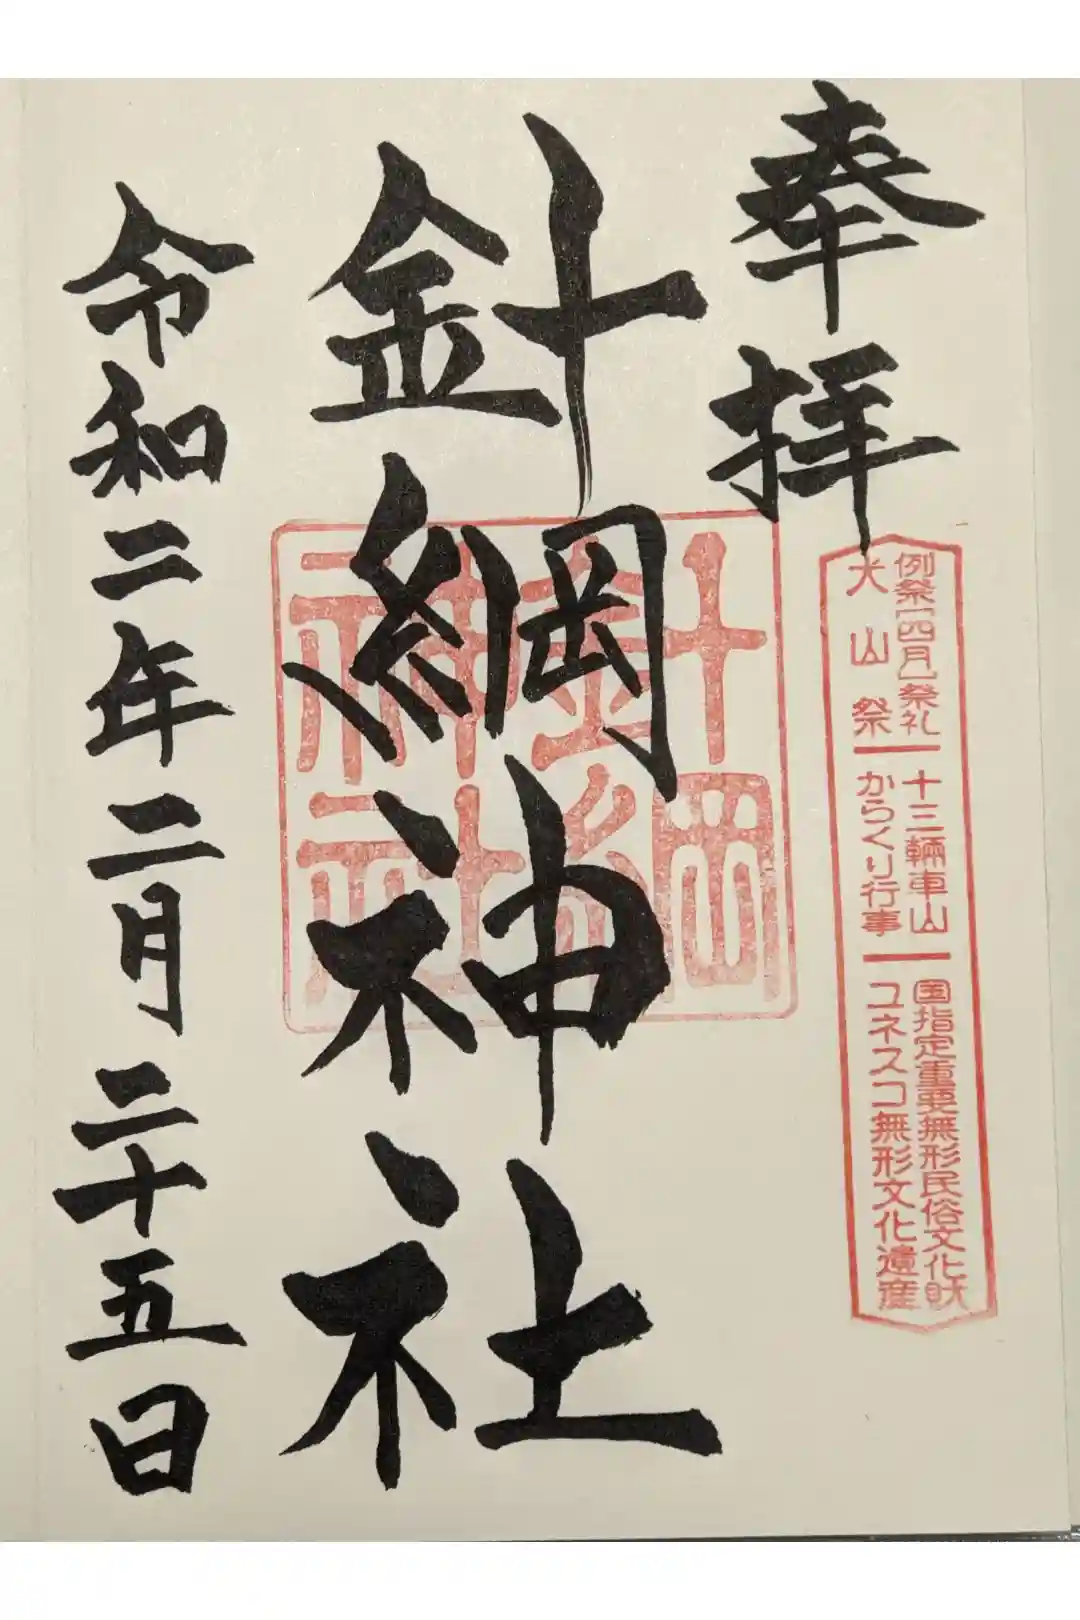 奉拝
例祭[四月]祭礼
犬山祭
十三輛車山
からくり行事
国指定重要無形民俗文化財
ユネスコ無形文化遺産
針綱神社
針綱神社
令和二年二月二十五日